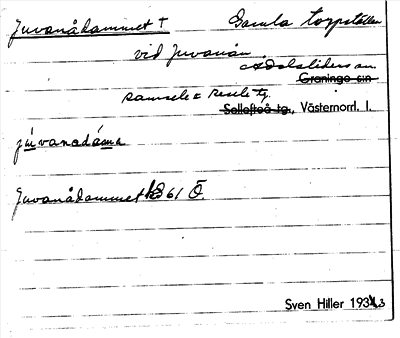 Juvanådammet + Gamla torpställen
vid Juvanån
Ådalslidens sn.
Graninge sn
Ramsele & Resele tg.
Sollefteå tg., Västernorrl. l.
juvanadáma
Juvanådammet k861 Ö.
Sven Hiller 1933